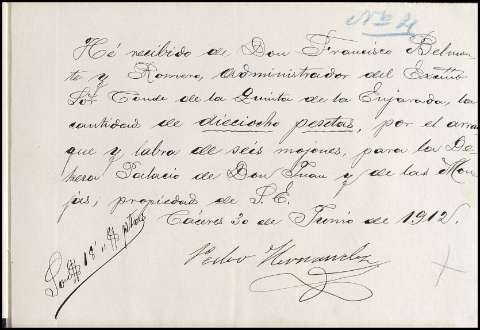 Nº 4
Hé recibido de Don Francisco Belmon-
te y Romero, Administrador del Excmo
Sor Conde de la Quinta de la Enjarada, la
cantidad de dieciocho pesetas, por el arran-
que y labra de seis mojones, para la De-
hesa Palacio de Don Juan y de las Mon-
jas; propiedad de S. E.
Cáceres 20 de Junio de 1912.
Pedro Hernandez
Son 18 ptas